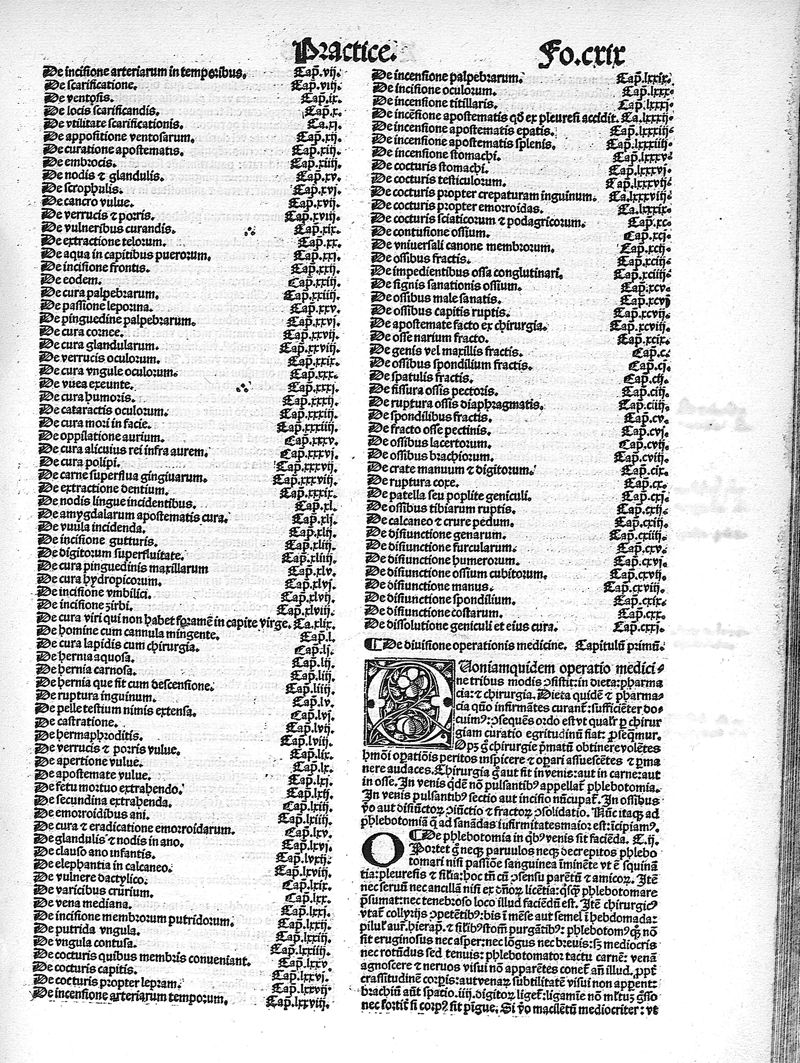 Practice.
Fo.cxix
De incisione arteriarum in temporibus. Cap̄.vij.
De scarificatione. Cap̄.viij.
De ventosis. Cap̄.ix.
De locis scarificandis. Cap̄.x.
De vtilitate scarificationis. Ca.xj.
De appositione ventosarum. Cap̄.xij.
De curatione apostematis. Cap̄.xiij.
De embrocis. Cap̄.xiiij.
De nodis ⁊ glandulis. Cap̄.xv.
De scrophulis. Cap̄.xvj.
De cancro vulue. Cap̄.xvij.
De verrucis ⁊ porris. Cap̄.xviij.
De vulneribus curandis. Cap̄.xix.
De extractione telorum. Cap̄.xx.
De aqua in capitibus puerorum. Cap̄.xxj.
De incisione frontis. Cap̄.xxij.
De eodem. Cap̄.xxiij.
De cura palpebrarum. Cap̄.xxiiij.
De passione leporina. Cap̄.xxv.
De pinguedine palpebrarum. Cap̄.xxvj.
De cura cornee. Cap̄.xxvij.
De cura glandularum. Cap̄.xxviij.
De verrucis oculorum. Cap̄.xxix.
De cura vngule oculorum. Cap̄.xxx.
De vuea exeunte. Cap̄.xxxj.
De cura humoris. Cap̄.xxxij.
De cataractis oculorum. Cap̄.xxxiij.
De cura mori in facie. Cap̄.xxxiiij.
De oppilatione aurium. Cap̄.xxxv.
De cura alicuius rei infra aurem. Cap̄.xxxvj.
De cura polipi. Cap̄.xxxvij.
De carne superflua gingiuarum. Cap̄.xxxviij.
De extractione dentium. Cap̄.xxxix.
De nodis lingue incidentibus. Cap̄.xl.
De amygdalarum apostematis cura. Cap̄.xlj.
De vuula incidenda. Cap̄.xlij.
De incisione gutturis. Cap̄.xliij.
De digitorum superfluitate. Cap̄.xliiij.
De cura pinguedinis maxillarum Cap̄.xlv.
De cura hydropicorum. Cap̄.xlvj.
De incisione vmbilici. Cap̄.xlvij.
De incisione zirbi. Cap̄.xlviij.
De cura viri qui non habet foramē in capite virge. Ca.xlix.
De homine cum cannula mingente. Cap̄.l.
De cura lapidis cum chirurgia. Cap̄.lj.
De hernia aquosa. Cap̄.lij.
De hernia carnosa. Cap̄.liij.
De hernia que fit cum descensione. Cap̄.liiij.
De ruptura inguinum. Cap̄.lv.
De pelle testium nimis extensa. Cap̄.lvj.
De castratione. Cap̄.lvij.
De hermaphroditis. Cap̄.lviij.
De verrucis ⁊ porris vulue. Cap̄.lix.
De apertione vulue. Cap̄.lx.
De apostemate vulue. Cap̄.lxj.
De fetu mortuo extrahendo. Cap̄.lxij.
De secundina extrahenda. Cap̄.lxiij.
De emorroidibus ani. Cap̄.lxiiij.
De cura ⁊ eradicatione emorroidarum. Cap̄.lxv.
De glandulis ⁊ nodis in ano. Cap̄.lxvj.
De clauso ano infantis. Cap̄.lxvij.
De elephantia in calcaneo. Cap̄.lxviij.
De vulnere dactylico. Cap̄.lxix.
De varicibus crurium. Cap̄.lxx.
De vena mediana. Cap̄.lxxj.
De incisione membrorum putridorum. Cap̄.lxxij.
De putrida vngula. Cap̄.lxxiij.
De vngula contusa. Cap̄.lxxiiij.
De cocturis quibus membris conueniant. Cap̄.lxxv.
De cocturis capitis. Cap̄.lxxvj.
De cocturis propter lepram. Cap̄.lxxvij.
De incensione arteriarum temporum. Cap̄.lxxviij.
De incensione palpebrarum. Cap̄.lxxix.
De incisione oculorum. Cap̄.lxxx.
De incensione titillaris. Cap̄.lxxxj.
De incēsione apostematis qđ ex pleuresi accidit. Ca.lxxxij.
De incensione apostematis epatis. Cap̄.lxxxiij.
De incensione apostematis splenis. Cap̄.lxxxiiij.
De incensione stomachi. Cap̄.lxxxv.
De cocturis stomachi. Cap̄.lxxxvj.
De cocturis testiculorum. Cap̄.lxxxvij.
De cocturis propter crepaturam inguinum. Ca.lxxxviij.
De cocturis propter emorroidas. Ca.lxxxix.
De cocturis sciaticorum ⁊ podagricorum. Cap̄.xc.
De contusione ossium. Cap̄.xcj.
De vniuersali canone membrorum. Cap̄.xcij.
De ossibus fractis. Cap̄.xciij.
De impedientibus ossa conglutinari. Cap̄.xciiij.
De signis sanationis ossium. Cap̄.xcv.
De ossibus male sanatis. Cap̄.xcvj
De ossibus capitis ruptis. Cap̄.xcvij.
De apostemate facto ex chirurgia. Cap̄.xcviij.
De osse narium fracto. Cap̄.xcix.
De genis vel maxillis fractis. Cap̄.c.
De ossibus spondilium fractis. Cap̄.cj.
De spatulis fractis. Cap̄.cij.
De fissura ossis pectoris. Cap̄.ciij.
De ruptura ossis diaphragmatis. Cap̄.ciiij.
De spondilibus fractis. Cap̄.cv.
De fracto osse pectinis. Cap̄.cvj.
De ossibus lacertorum. Cap̄.cvij.
De ossibus brachiorum. Cap̄.cviij.
De crate manuum ⁊ digitorum. Cap̄.cix.
De ruptura coxe. Cap̄.cx.
De patella seu poplite geniculi. Cap̄.cxj.
De ossibus tibiarum ruptis. Cap̄.cxij.
De calcaneo ⁊ crure pedum. Cap̄.cxiij.
De disiunctione genarum. Cap̄.cxiiij.
De disiunctione furcularum. Cap̄.cxv.
De disiunctione humerorum. Cap̄.cxvj.
De disiunctione ossium cubitorum. Cap̄.cxvij.
De disiunctione manus. Cap̄.cxviij.
De disiunctione spondilium. Cap̄.cxix.
De disiunctione costarum. Cap̄.cxx.
De dissolutione geniculi et eius cura. Cap̄.cxxj.
¶ De diuisione operationis medicine. Capitulū primū.
Quoniamquidem operatio medici-
ne tribus modis ꝯsistit: in dieta: pharma
cia: ⁊ chirurgia. Dieta quidē ⁊ pharma-
cia quō infirmātes curant: sufficiēter do-
cuimꝰ: ꝯsequēs ordo est vt qualr̄ ꝑ chirur
giam curatio egritudinū fiat: ꝓseqmur.
Ops g̊ chirurgie p̄matū obtinere volētes
hmōi oꝑatiōis peritos inspicere ⁊ oꝑari assuescētes ⁊ ꝑma
nere audaces. Chirurgia g̊ aut fit in venis: aut in carne: aut
in osse. In venis qdē nō pulsantibꝰ appellat̄ phlebotomia.
In venis pulsantibꝰ sectio aut incisio nūcupat̄. In ossibus
ꝟo aut disiūctoꝝ ꝯiūctio ⁊ fractoꝝ ꝯsolidatio. Nūc itaqꝫ ad
phlebotomiā q̄ ad sanādas infirmitates maior est: īcipiamꝰ.
¶ De phlebotomia in qbꝰ venis fit faciēda. C.ij.
Oportet g̊ neqꝫ paruulos neqꝫ decrepitos phlebo
tomari nisi passiōe sanguinea īminēte vt ē squinā
tia: pleuresis ⁊ silia: hoc tn̄ cū ꝯsensu parētū ⁊ amicoꝝ. Itē
nec seruū nec ancillā nisi ex dn̄oꝝ licētia: qsqꝫ phlebotomare
p̄sumat: nec tenebroso loco illud faciēdū est. Itē chirurgicꝰ
vtat̄ collyrijs ꝯpetētibꝰ: bis ī mēse aut semel ī hebdomada:
pilul̄ aut̄. hierap. ⁊ silibꝰ stom̄ purgātibꝰ: phlebotomꝰ qꝫ nō
sit eruginosus nec asper: nec lōgus nec breuis: sꝫ mediocris
nec rotūdus sed tenuis: phlebotomator tactu carnē: venā
agnoscere ⁊ neruos visui nō apparētes conet̄ an̄ illud. ꝓpt̄
crassitudinē corꝑis: aut venaꝝ subtilitatē visui non apꝑent:
brachiū aūt spatio .iiij. digitoꝝ liget̄: ligamīe nō ml̄tuꝫ
nec forti: si corpꝰ sit pīgue. Si ꝟo macilētū mediocriter: vt